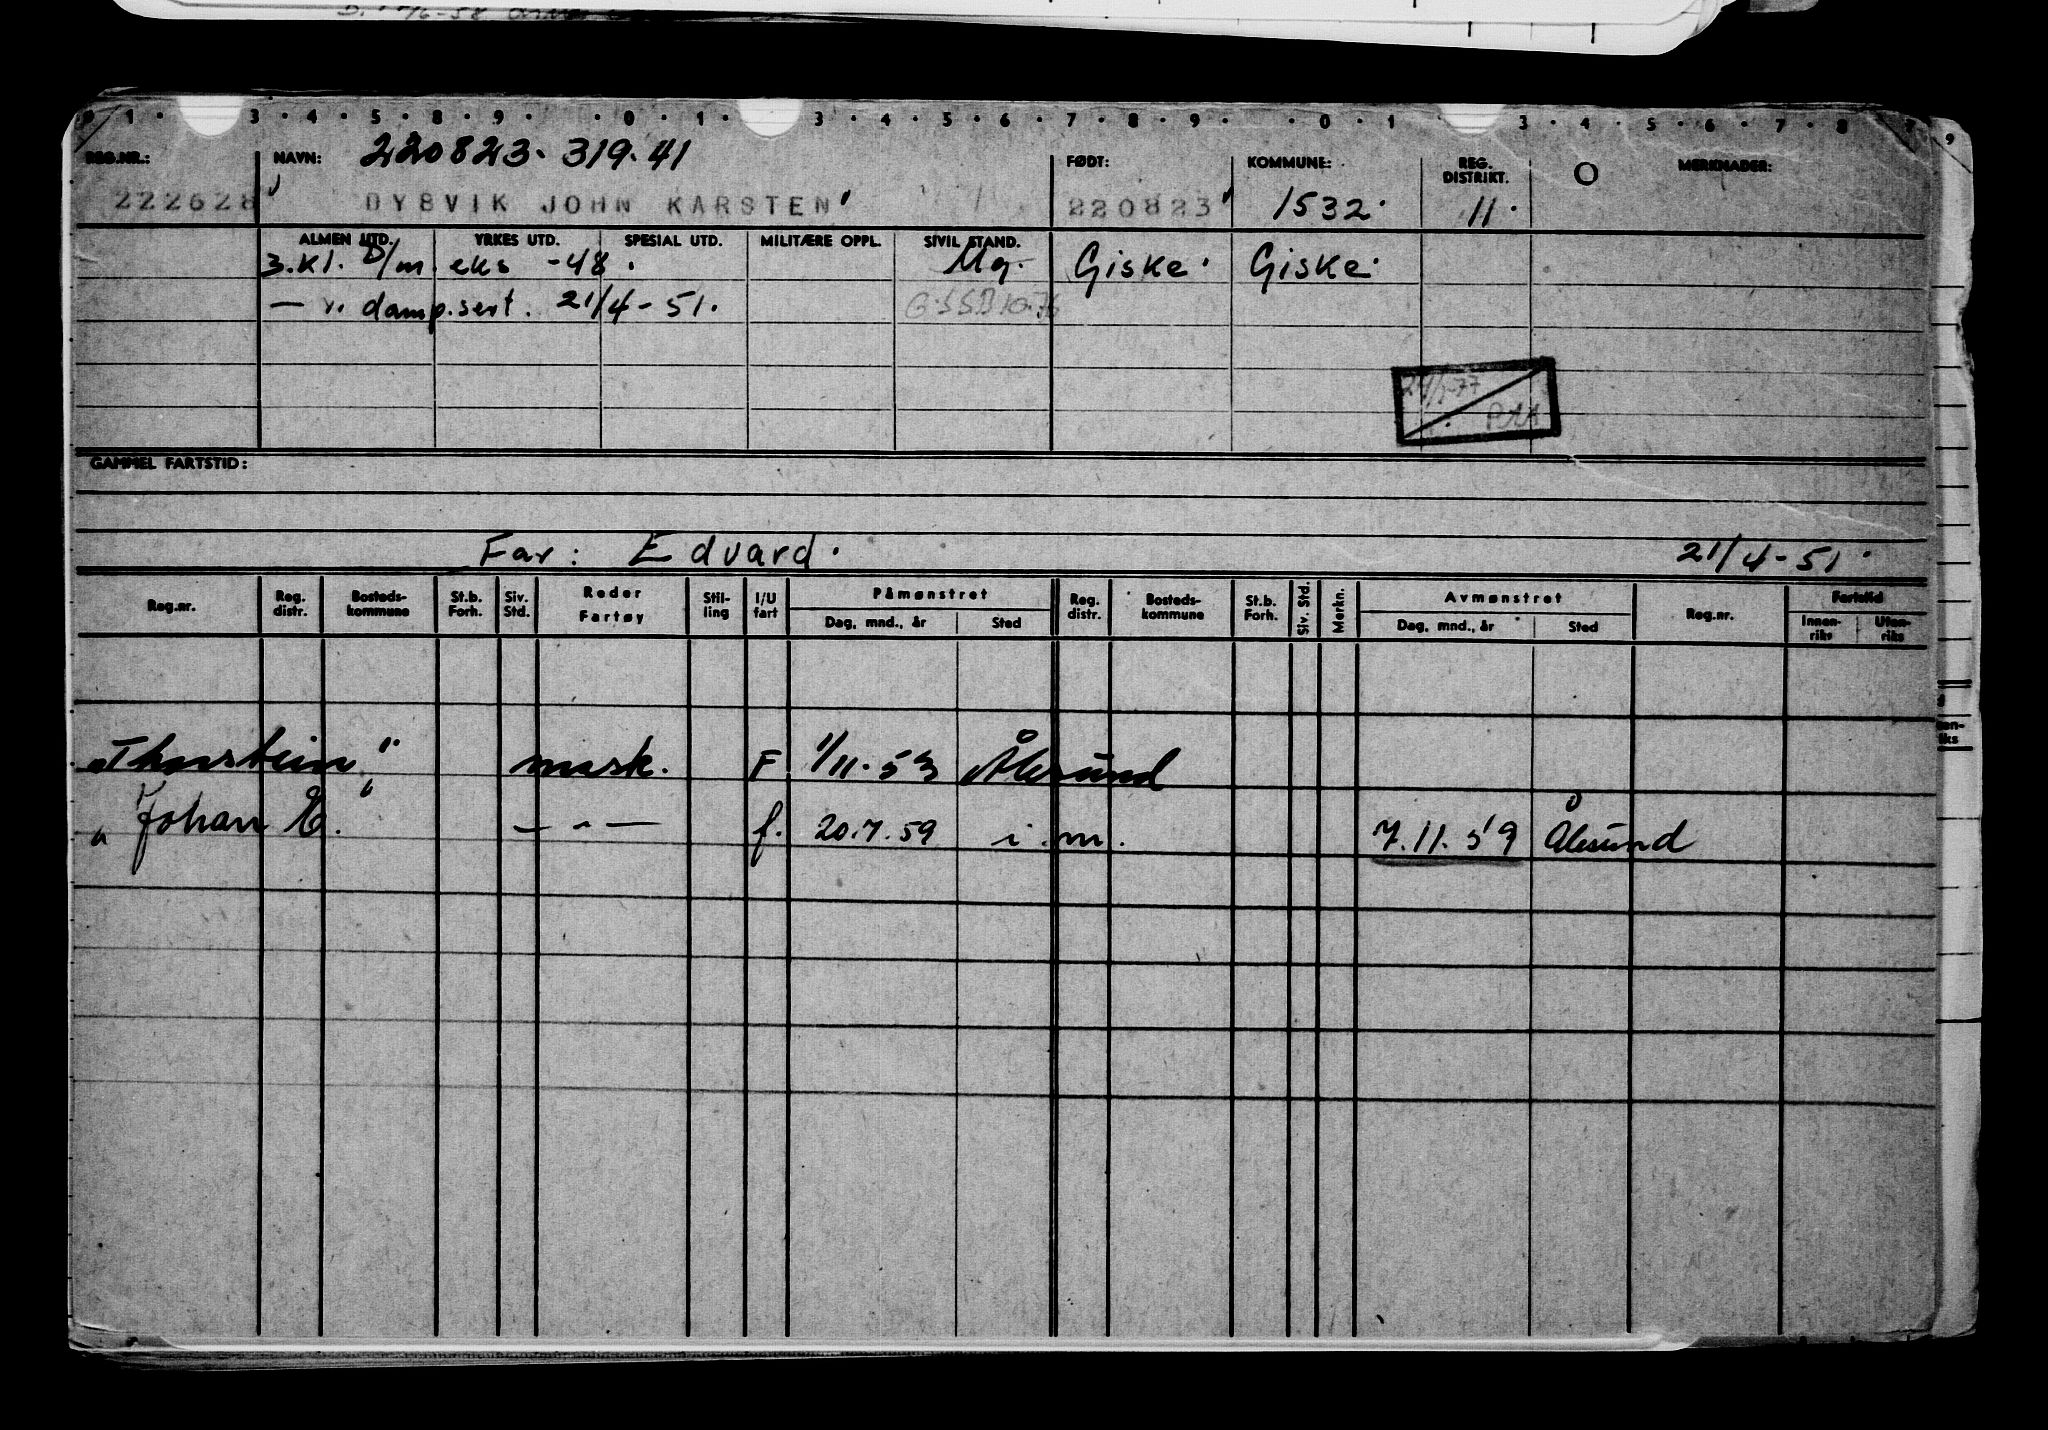 1 3 4 5 8 9 0 1 3 4 5 6 7 8 9 0 1 3 4 5 6 7 8 9
REG.NR.: NAVN: 220823. 319.41 FØDT: KOMMUNE: REG. DISTRIKT. O MERKNADER:
222628 DYBVIK JOHN KARSTEN 220823 1532. 11.
ALMEN UTD. YRKES UTD. SPESIAL UTD. MILITÆRE OPPL. SIVIL STAND.
3.kl. D/m. eks -48. Ug. Giske. Giske.
— v. damp.sert. 21/4-51.
GAMMEL FARTSTID:
Far: Edvard. 21/4-51.
Reg.nr. Reg. distr. Bosteds-kommune St.b. Forh. Siv. Std. Reder Fartøy Stil-ling I/U fart Påmønstret Reg. distr. Bosteds-kommune St.b. Forh. Siv. Std. Merkn. Avmønstret Reg.nr. Fartstid
Dag, mnd., år Sted Dag, mnd., år Sted Innen-riks Uten-riks
"Thorstein" mask. F 1/11.53 Ålesund
"Johan E." — " — f. 20.7.59 i.m. 7.11.59 Ålesund